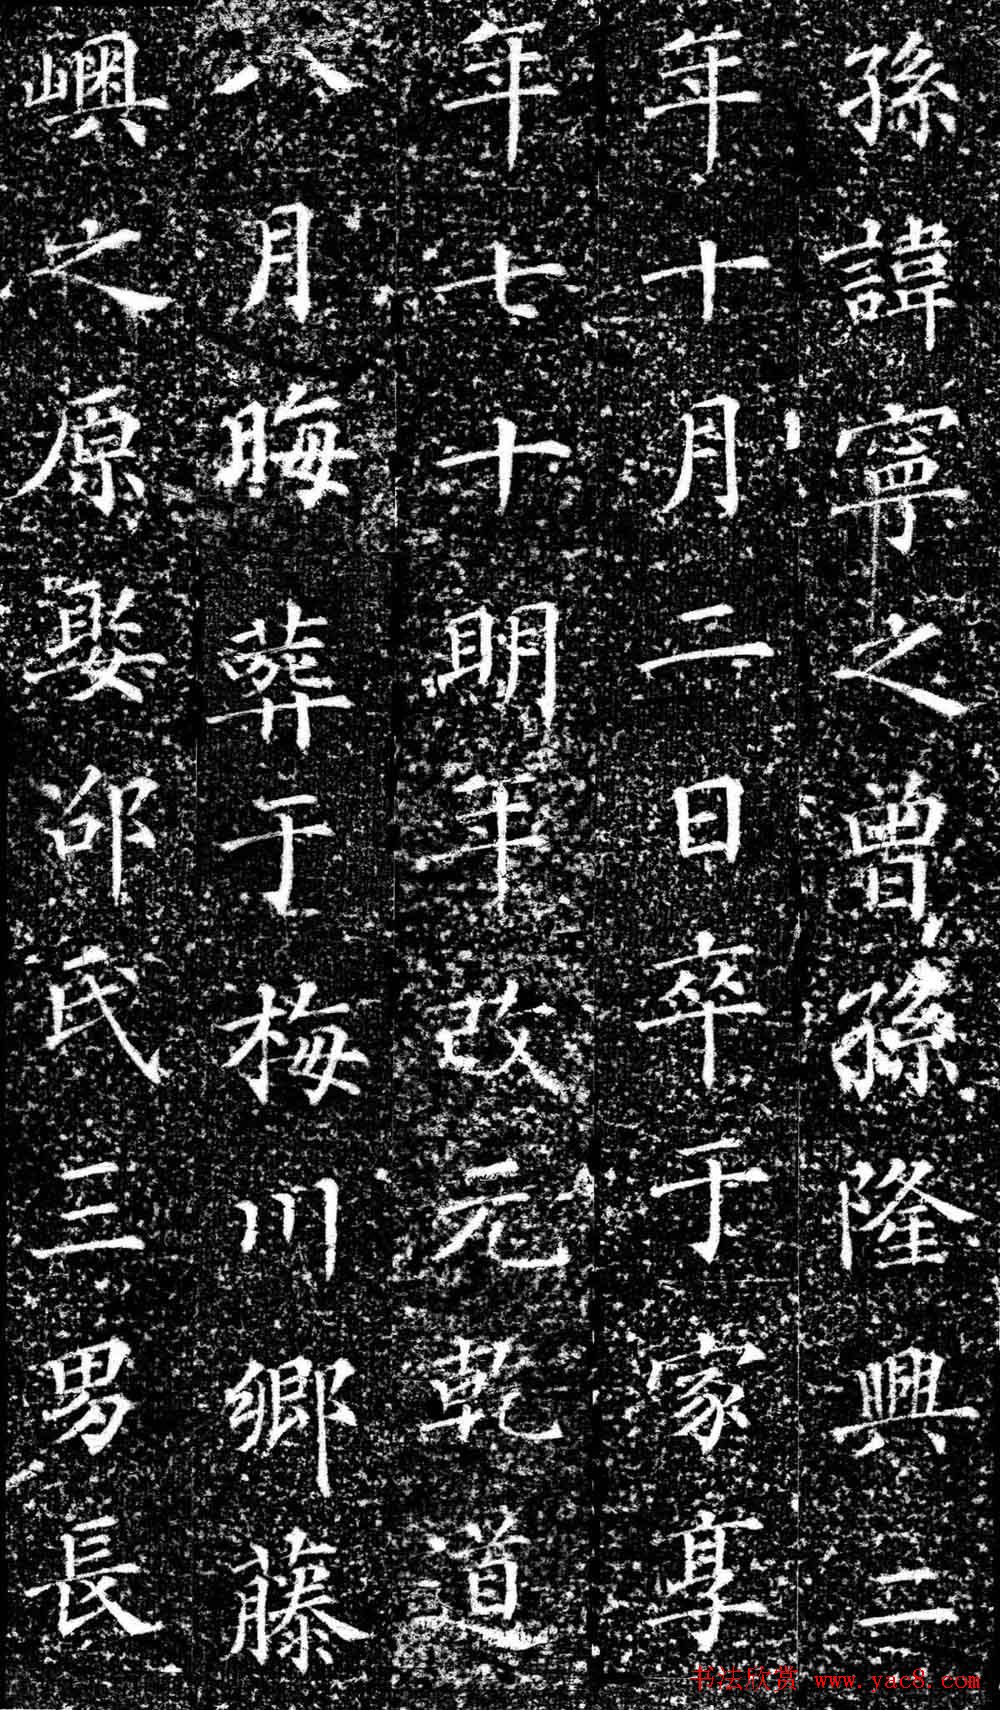 孫諱寧之曾孫隆興二
年十月二日卒于家享
年七十明年改元乾道
八月晦葬于梅川鄉藤
嶼之原娶邵氏三男長
书法欣赏 www.yac8.com